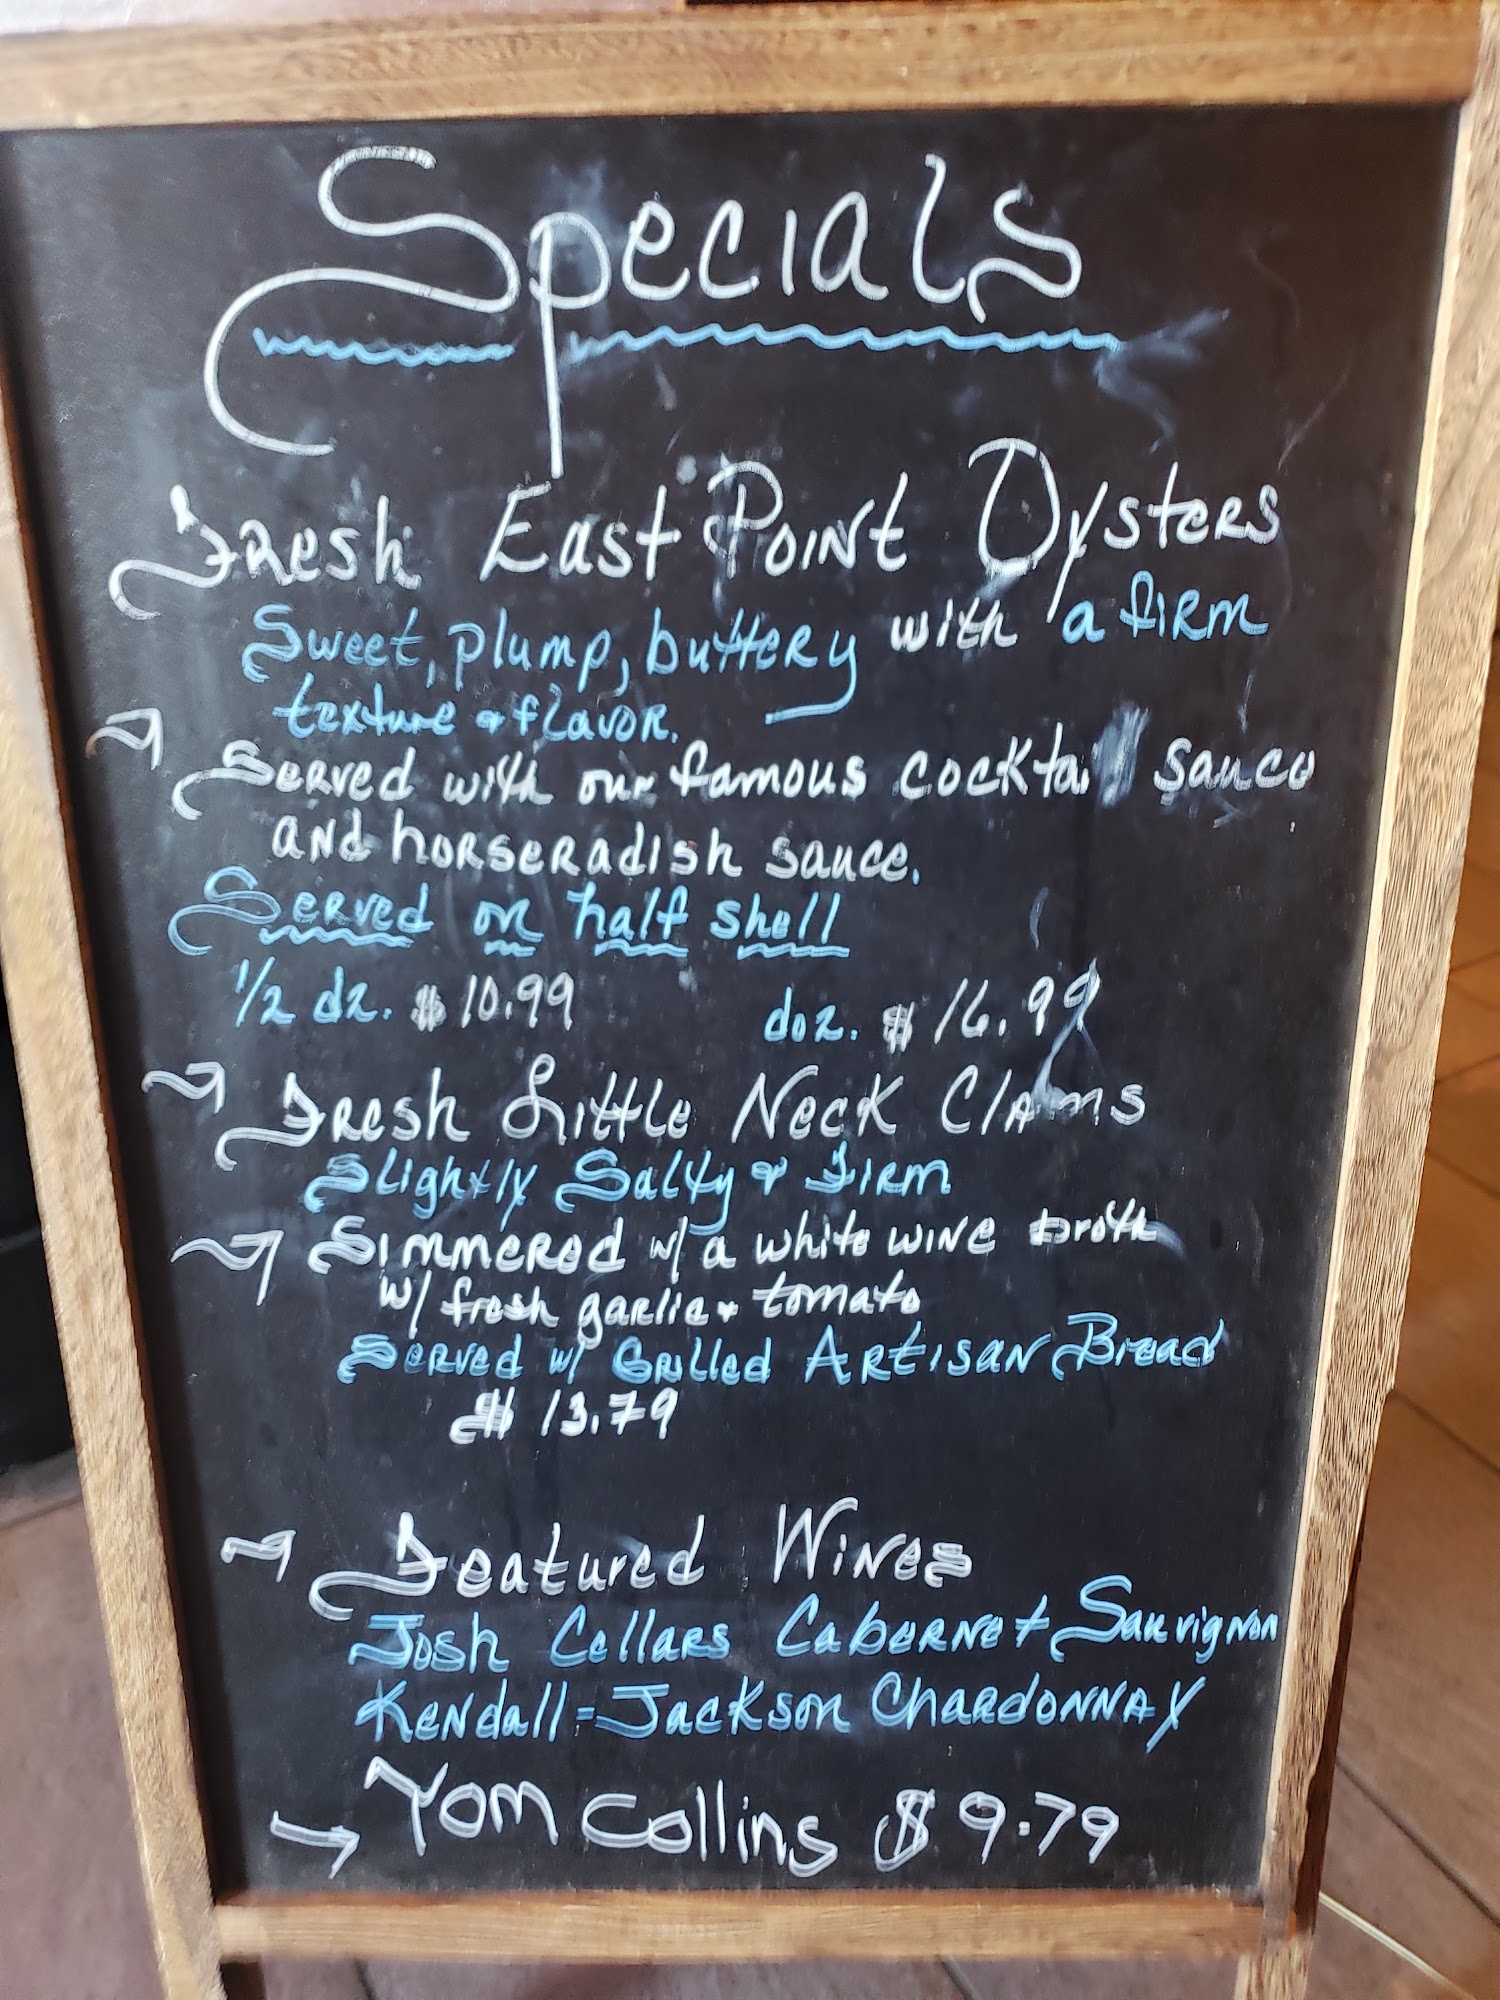 Specials
Fresh East Point Oysters
Sweet, plump, buttery with a firm
texture & flavor.
Served with our famous cocktail sauce
and horseradish sauce.
Served on half shell
1/2 dz. $10.99 doz. $16.99
Fresh Little Neck Clams
Slightly Salty & Firm
Simmered w/ a white wine broth
w/ fresh garlic & tomato
Served w/ Grilled Artisan Bread
$13.79
Featured Wines
Josh Cellars Cabernet Sauvignon
Kendall=Jackson Chardonnay
Tom Collins $9.79